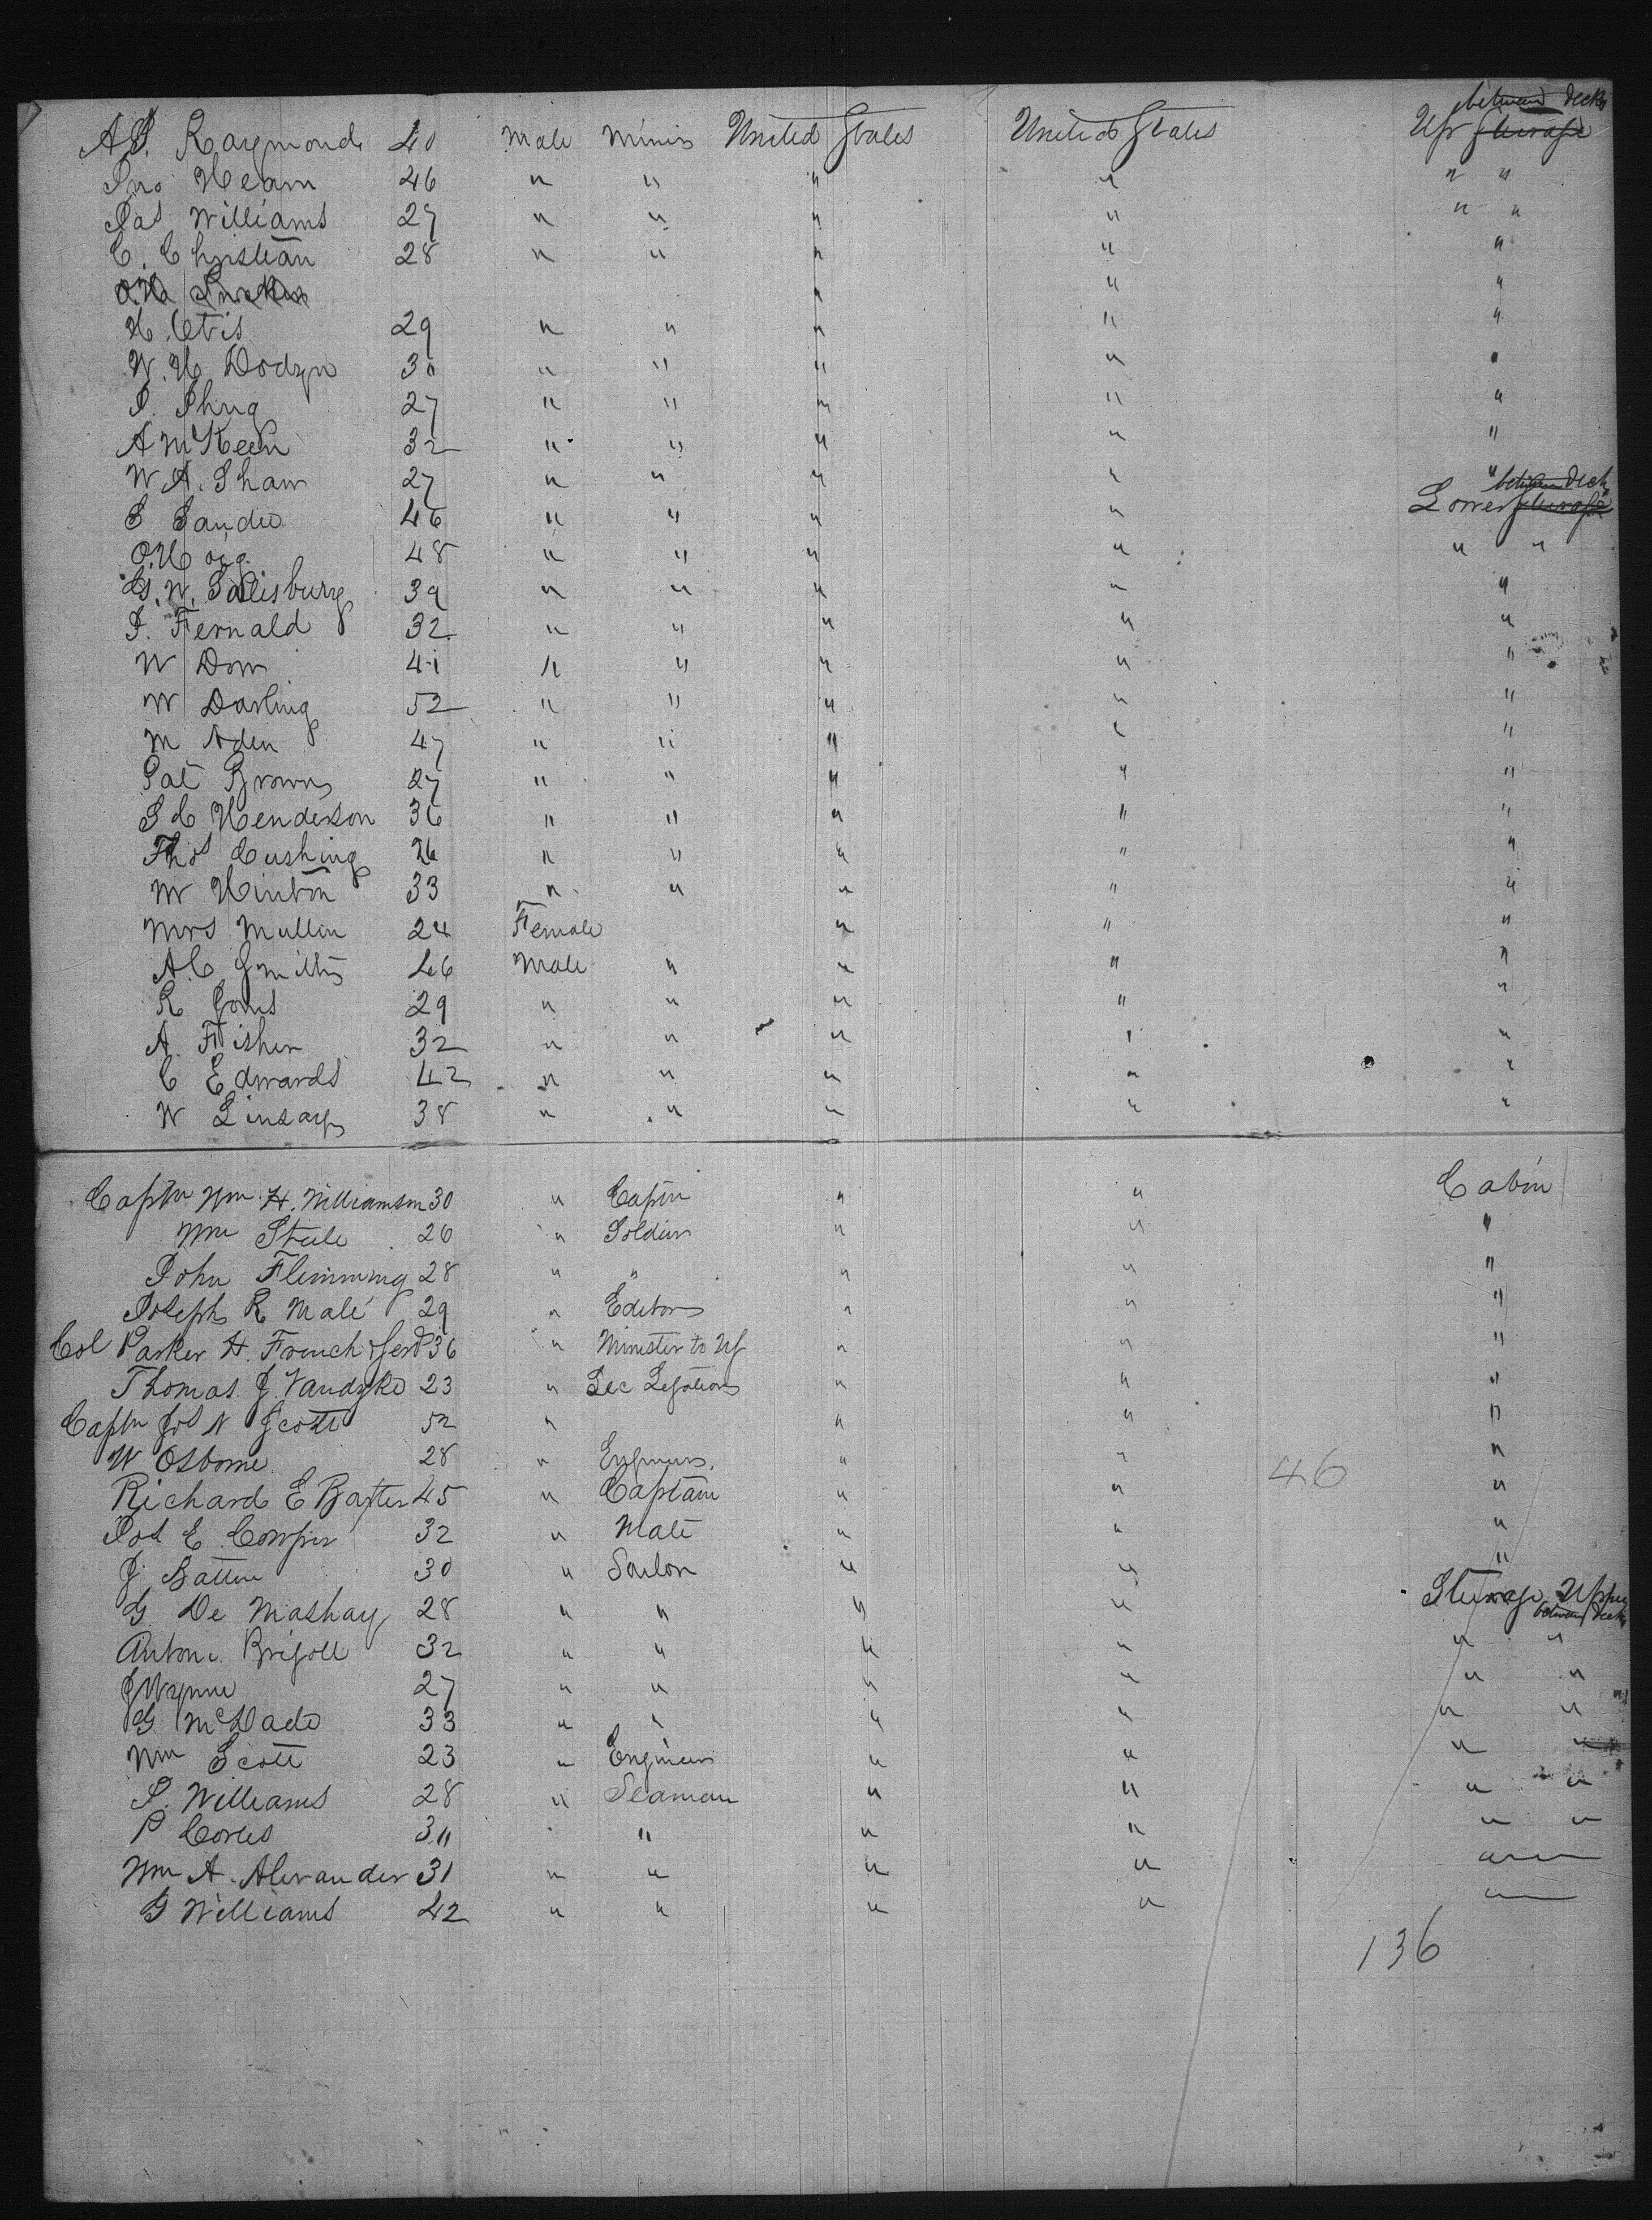 between decks
A.J. Raymond 40 Male Miner United States United States Upr Steerage
Jno Hearn 46 " " " " " "
Jas Williams 27 " " " " " "
C. Christian 28 " " " " "
O.H. " " "
H. Otis 29 " " " " "
W. H. Dodzn 30 " " " " "
J. Shug 27 " " " " "
A McKeen 32 " " " " "
W A. Shaw 27 " " " " "
between deck
S Sander 46 " " " " Lower Steerage
O. Hoig 48 " " " " " "
G. W. Salisbury 39 " " " " "
J. Fernald 32 " " " " "
W Dow 41 " " " " "
W Darling 52 " " " " "
M Aden 47 " " " " "
Pat Brown 27 " " " " "
S C Henderson 36 " " " " "
Thos Cushing 26 " " " " "
W Hinton 33 " " " " "
Mrs Mullin 24 Female " " "
A C Smith 46 Male " " " "
R Jones 29 " " " " "
A. Fisher 32 " " " " "
C Edwards 42 " " " " "
W Linsay 38 " " " " "
Captn Wm. H. Williamson 30 " Captn " " Cabin
Wm Steele 26 " Soldier " " "
John Flemming 28 " " " " "
Joseph R Malé 29 " Editor " " "
Col Parker H. French & Servt 36 " Minister to US " " "
Thomas. J. Vandyke 23 " Sec Legation " " "
Captn Jos N Scott 52 " " " "
W Osborne 28 " Engineer. " " "
46
Richard E Baxter 45 " Captain " " "
Jos E. Cowper 32 " Mate " " "
J. Batten 30 " Sailor " " "
G De Mashay 28 " " " " Steerage Upper
between decks
Anton. Brifoll 32 " " " " " "
J Wynne 27 " " " " " "
G. McDade 33 " " " " " "
Wm Scott 23 " Engineer " " " "
J. Williams 28 " Seaman " " " "
P Cortes 30 " " " " "
Wm A. Alexander 31 " " " " "
G Williams 42 " " " " "
136